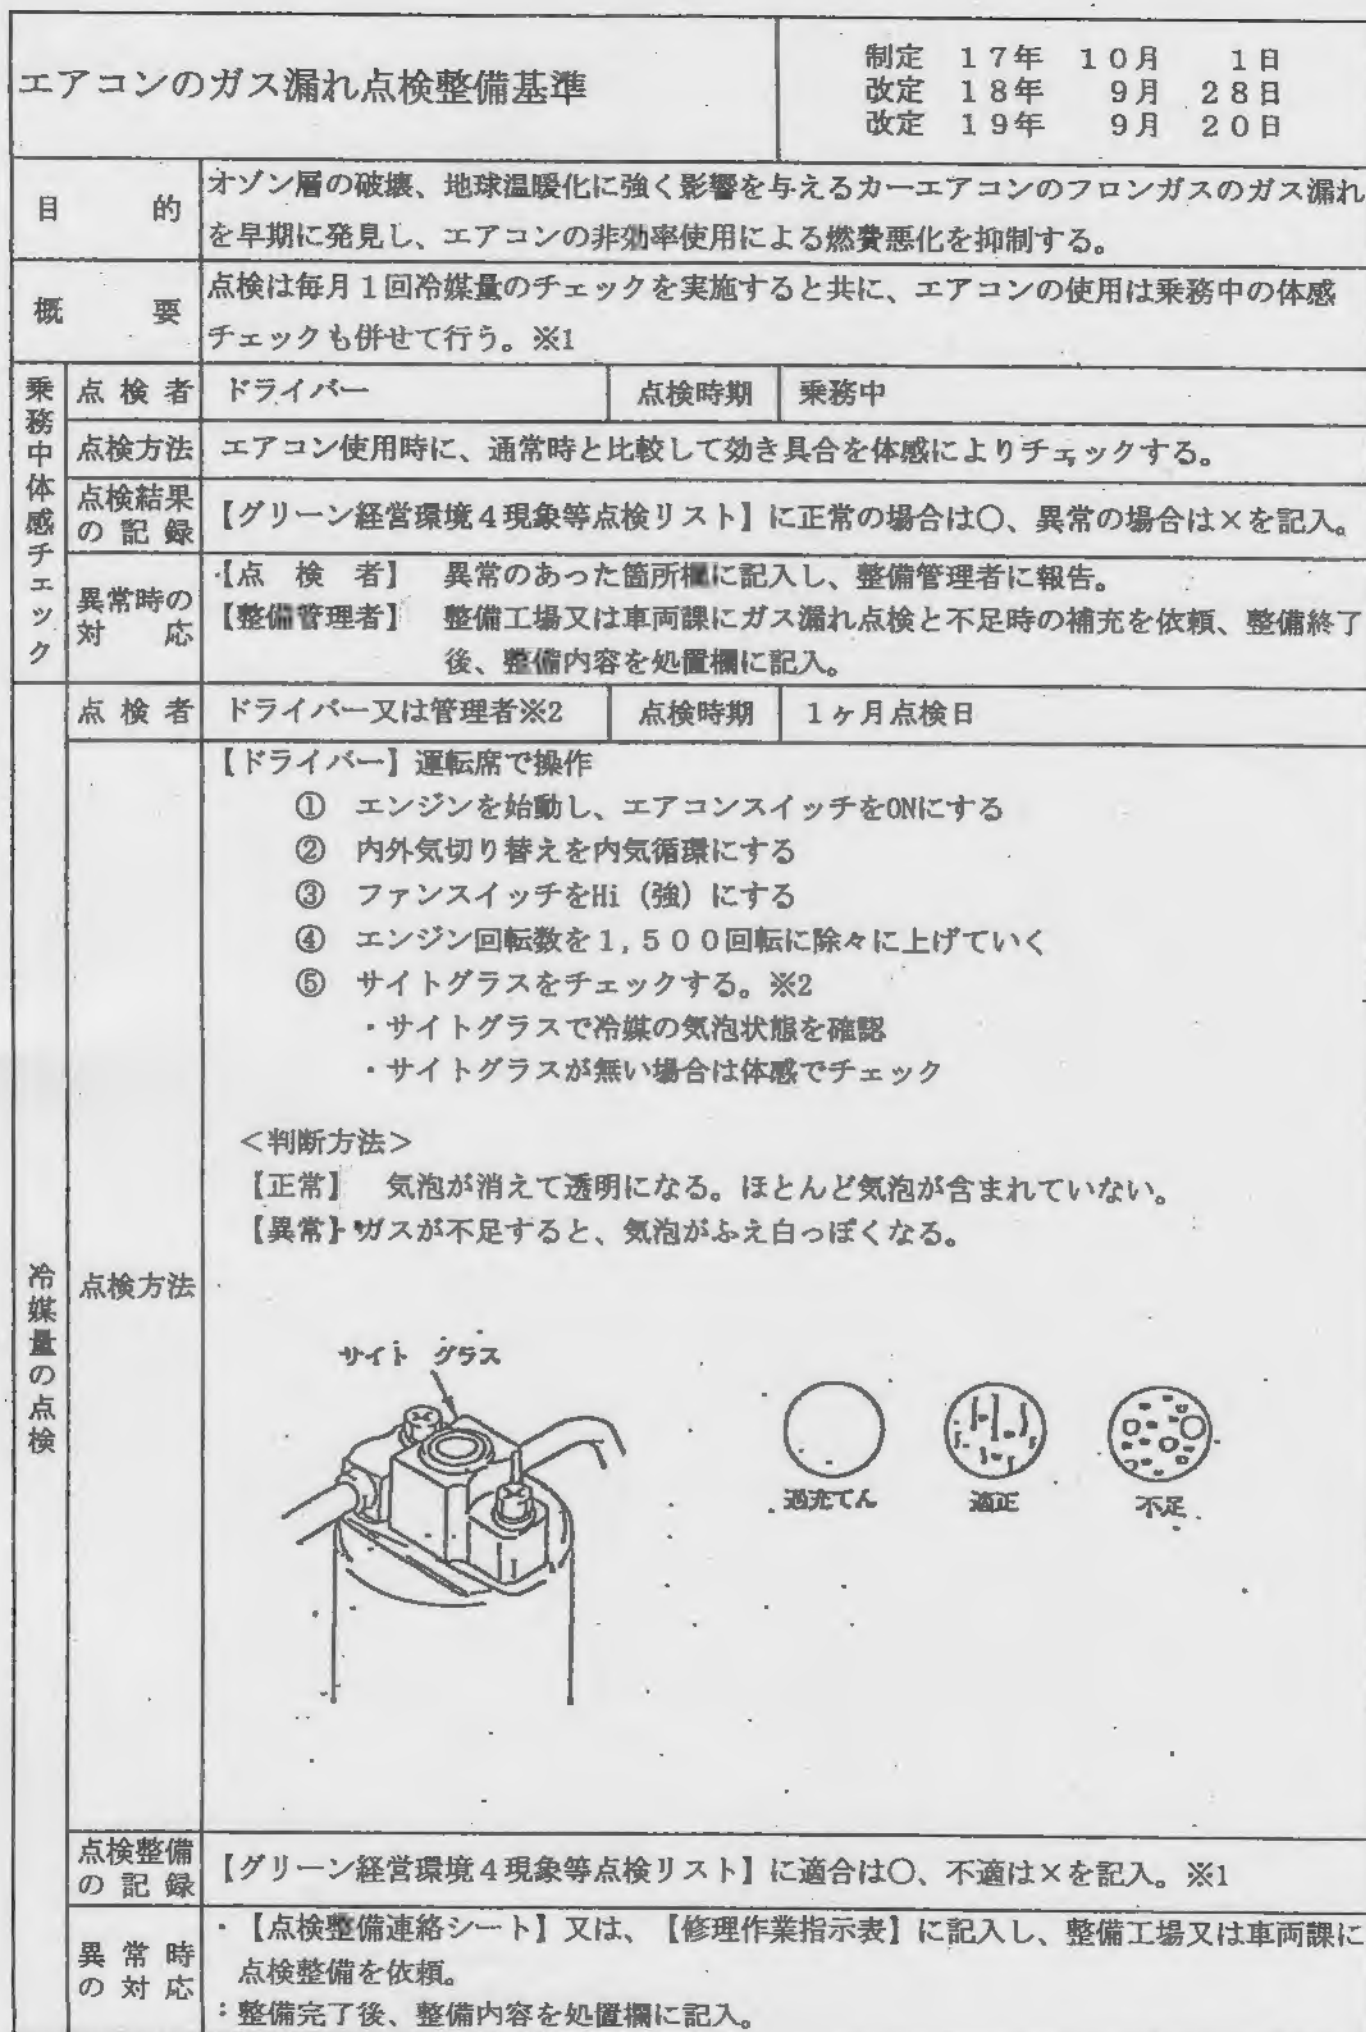 エアコンのガス漏れ点検整備基準
制定 17年 10月 1日
改定 18年 9月 28日
改定 19年 9月 20日
目 的
オゾン層の破壊、地球温暖化に強く影響を与えるカーエアコンのフロンガスのガス漏れ
を早期に発見し、エアコンの非効率使用による燃費悪化を抑制する。
概 要
点検は毎月1回冷媒量のチェックを実施すると共に、エアコンの使用は乗務中の体感
チェックも併せて行う。※1
乗務中体感チェック
点 検 者 ドライバー 点検時期 乗務中
点検方法 エアコン使用時に、通常時と比較して効き具合を体感によりチェックする。
点検結果
の 記 録
【グリーン経営環境4現象等点検リスト】に正常の場合は〇、異常の場合は×を記入。
異常時の
対 応
【点 検 者】 異常のあった箇所欄に記入し、整備管理者に報告。
【整備管理者】 整備工場又は車両課にガス漏れ点検と不足時の補充を依頼、整備終了
後、整備内容を処置欄に記入。
冷媒量の点検
点 検 者 ドライバー又は管理者※2 点検時期 1ヶ月点検日
点検方法
【ドライバー】運転席で操作
① エンジンを始動し、エアコンスイッチをONにする
② 内外気切り替えを内気循環にする
③ ファンスイッチをHi（強）にする
④ エンジン回転数を1,500回転に除々に上げていく
⑤ サイトグラスをチェックする。※2
・サイトグラスで冷媒の気泡状態を確認
・サイトグラスが無い場合は体感でチェック
＜判断方法＞
【正常】 気泡が消えて透明になる。ほとんど気泡が含まれていない。
【異常】ガスが不足すると、気泡がふえ白っぽくなる。
サイト グラス
過充てん 適正 不足
点検整備
の 記 録
【グリーン経営環境4現象等点検リスト】に適合は〇、不適は×を記入。※1
異 常 時
の 対 応
・【点検整備連絡シート】又は、【修理作業指示表】に記入し、整備工場又は車両課に
点検整備を依頼。
：整備完了後、整備内容を処置欄に記入。